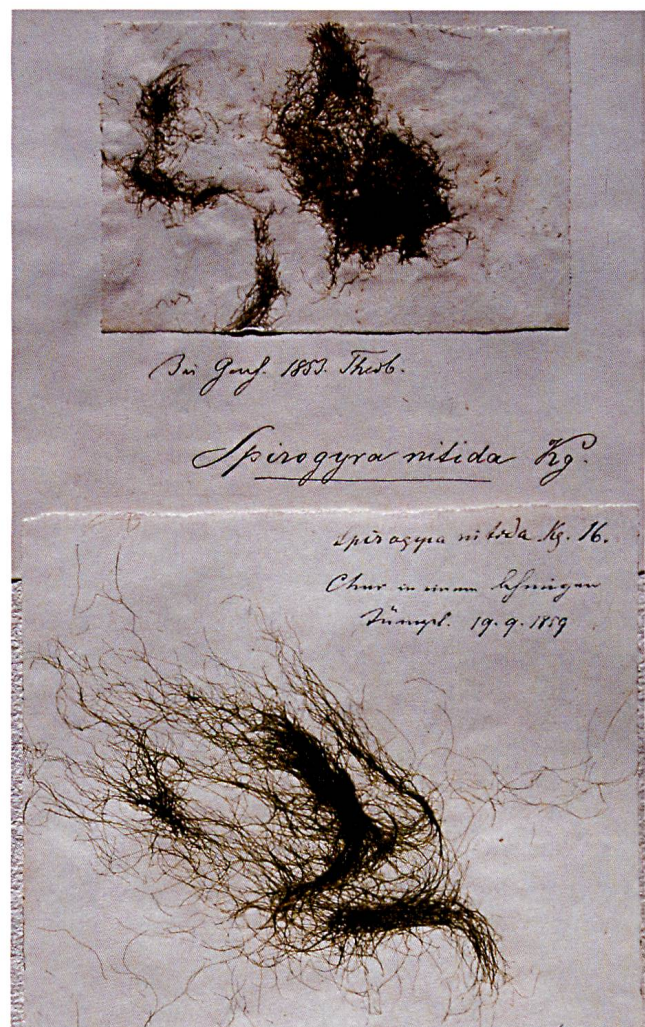 Bei Genf. 1853. Theob.
Spirogyra nitida Kg.
Spirogyra nitida Kg. 16.
Chur in einem lehmigen
Tümpel. 19. 9. 1859